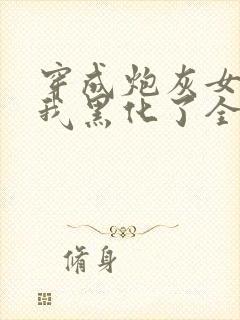 穿成炮灰女
我黑化了全
脩身